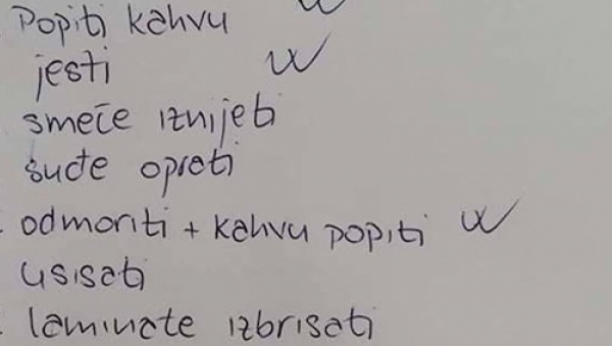 Popiti kahvu
jesti
smeće iznijeti
suđe oprati
odmoriti + kahvu popiti
usisati
laminate izbrisati